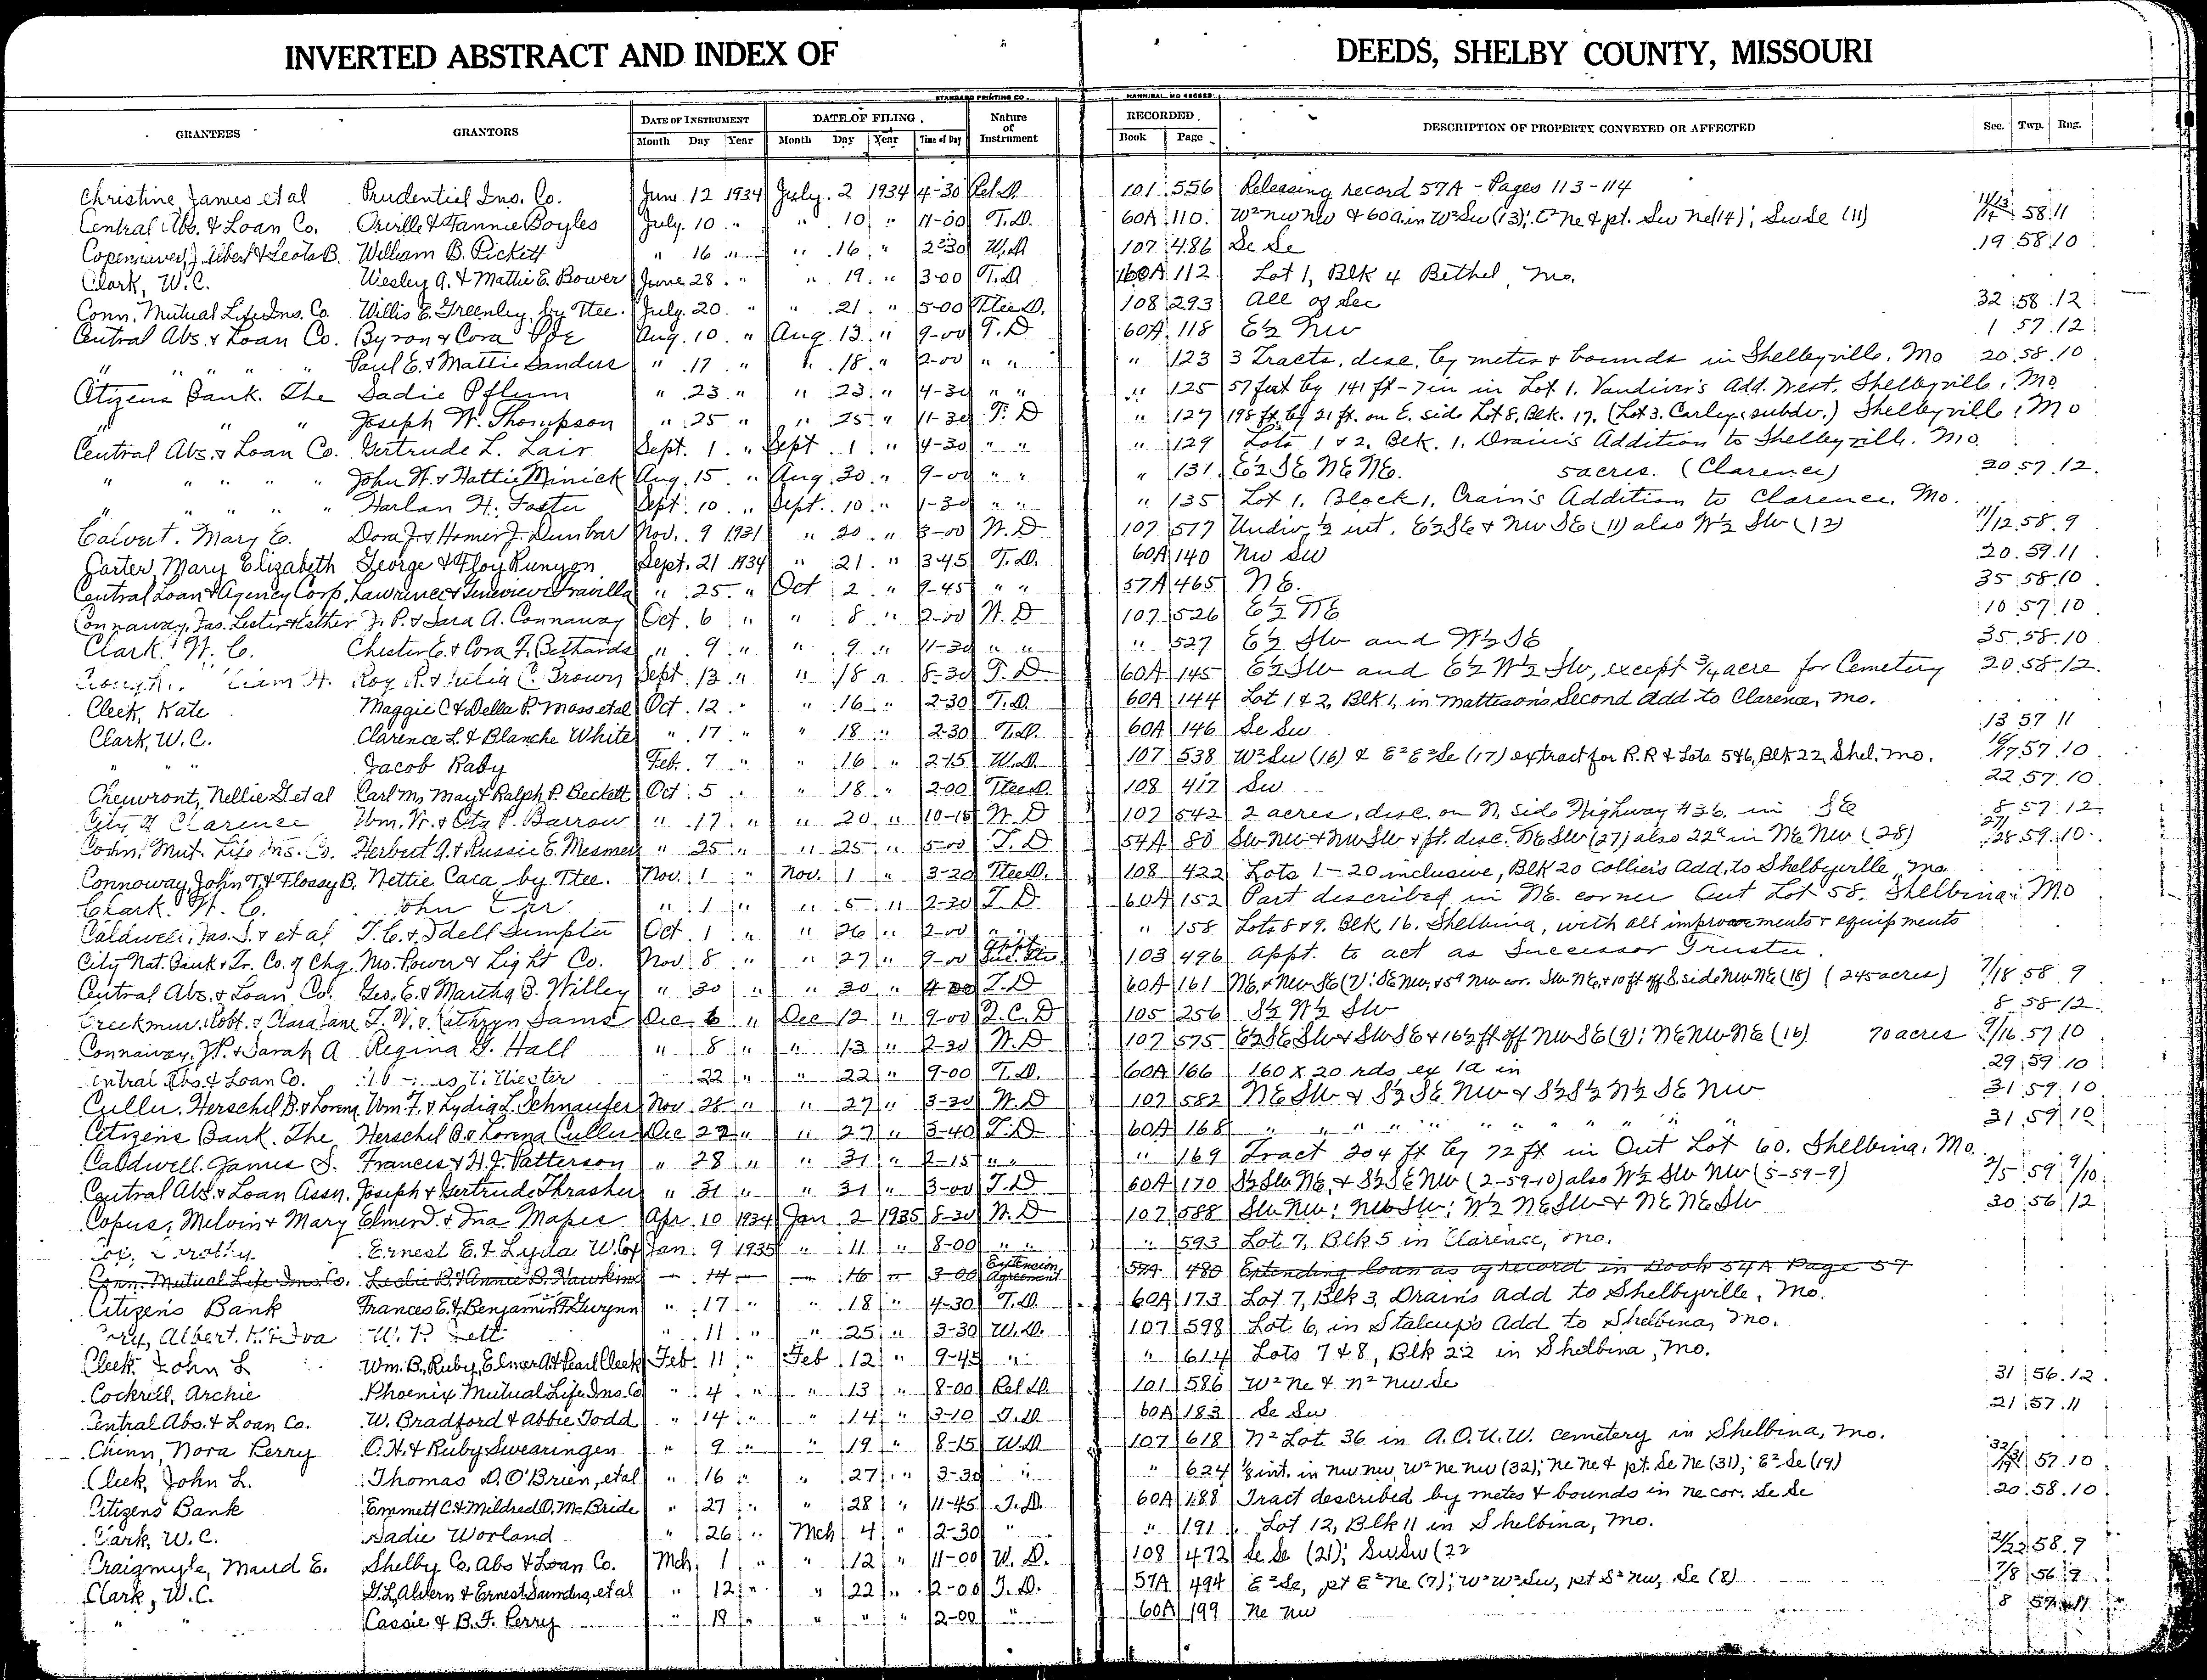 INVERTED ABSTRACT AND INDEX OF DEEDS, SHELBY COUNTY, MISSOURI
STANDARD PRINTING CO. HANNIBAL, MO
GRANTEES GRANTORS DATE OF INSTRUMENT DATE OF FILING Nature of Instrument RECORDED DESCRIPTION OF PROPERTY CONVEYED OR AFFECTED Sec. Twp. Rng.
Month Day Year Month Day Year Time of Day Book Page
Christine, James et al Prudential Ins. Co. June 12 1934 July 2 1934 4-30 Rel D. 101 556 Releasing record 57A - Pages 113-114
Central Abs. & Loan Co. Orville & Fannie Boyles July 10 " " 10 " 11-00 T.D. 60A 110 W² nw nw & 60a in W² Sw (13); E² ne & pt. Sw Ne (14); Sw Se (11) 11/13/14 58 11
William B. Pickett " 16 " " 16 " 2-30 W.D. 107 486 Se Se 19 58 10
Clark, W.C. Wesley A. & Mattie E. Bower June 28 " " 19 " 3-00 T.D. 60A 112 Lot 1, Blk 4 Bethel, Mo.
Conn. Mutual Life Ins. Co. Willis E. Greenley, by Ttee. July 20 " " 21 " 5-00 Ttee D. 108 293 All of Sec 32 58 12
Central Abs. & Loan Co. Byron & Cora Poe Aug. 10 " Aug. 13 " 9-00 T.D 60A 118 E½ NW 1 57 12
" " " " Paul E. & Mattie Sanders " 17 " " 18 " 2-00 " " " 123 3 Tracts, desc. by metes & bounds in Shelbyville, Mo 20 58 10
Citizens Bank, The Sadie Pflum " 23 " " 23 " 4-30 " " " 125 57 feet by 141 ft-7 in in Lot 1. Vandiver's Add. West, Shelbyville, Mo
" " " Joseph W. Thompson " 25 " " 25 " 11-30 T.D " 127 198 ft. by 21 ft. on E. side Lot 8, Blk. 17, (Lot 3. Carley's subdv.) Shelbyville, Mo
Central Abs. & Loan Co. Gertrude L. Lair Sept. 1 " Sept 1 " 4-30 " " " 129 Lots 1 & 2, Blk. 1, Drain's Addition to Shelbyville. Mo.
" " " " " John W. & Hattie Minick Aug. 15 " Aug. 30 " 9-00 " " " 131 E½ SE NE NE. 5 acres. (Clarence) 20 57 12
" " " " " Harlan H. Foster Sept. 10 " Sept. 10 " 1-30 " " " 135 Lot 1, Block 1, Crain's Addition to Clarence, Mo.
Calvert, Mary E. Dora J. & Homer J. Dunbar Nov. 9 1931 " 20 " 3-00 W.D 107 517 Undiv. ½ int. E½ SE & NW SE (11) also W½ SW (12) 11/12 58 9
Carter, Mary Elizabeth George & Floy Runyon Sept. 21 1934 " 21 " 3-45 T.D. 60A 140 NW SW 20 59 11
Central Loan & Agency Corp. Lawrence & Genevieve Travilla " 25 " Oct 2 " 9-45 " " 57A 465 NE. 35 58 10
Connaway, Jas. Lester & Esther J. P. & Sara A. Connaway Oct. 6 " " 8 " 2-00 W.D 107 526 E½ NE 10 57 10
Clark, W. C. Chester E. & Cora F. Bethards " 9 " " 9 " 11-30 " " " 527 E½ SW and W½ SE 35 58 10
Roy R. & Julia C. Brown Sept. 13 " " 18 " 8-30 T.D 60A 145 E½ SW and E½ W½ SW, except ¾ acre for Cemetery 20 58 12
Cleek, Kate Maggie C. & Della P. Moss et al Oct. 12 " " 16 " 2-30 T.D. 60A 144 Lot 1 & 2, Blk 1, in Mattison's Second Add to Clarence, Mo.
Clark, W.C. Clarence L. & Blanche White " 17 " " 18 " 2-30 T.D. 60A 146 Se Sw 13 57 11
" " Jacob Raby Feb. 7 " " 16 " 2-15 W.D. 107 538 W² Sw (16) & E² E² Se (17) ex tract for R.R & Lots 5&6, Blk 22, Shel. Mo. 16/17 57 10
Cheuvront, Nellie G et al Carl M, May & Ralph P. Beckett Oct. 5 " " 18 " 2-00 Ttee D. 108 417 Sw 22 57 10
City of Clarence Wm. W. & Ota P. Barrow " 17 " " 20 " 10-15 W.D 107 542 2 acres, desc. on N. side Highway #36, in SE 8 57 12
Conn. Mut. Life Ins. Co. Herbert A. & Russie E. Mesmer " 25 " " 25 " 5-00 T.D 54A 80 SW NW & NW SW & pt. desc. NE SW (27) also 22ª in NE NW (28) 27/28 59 10
Connoway, John T. & Flossy B. Nettie Caca by Ttee. Nov. 1 " Nov. 1 " 3-20 Ttee D. 108 422 Lots 1-20 inclusive, Blk 20 Collier's Add. to Shelbyville, Mo.
Clark, W. C. John Orr " 1 " " 5 " 2-30 T.D 60A 152 Part described in NE. corner Out Lot 58, Shelbina, Mo
Caldwell, Jas. S. & et al T. C. & Idell Sumpter Oct. 1 " " 26 " 2-00 " " " 158 Lots 8 & 9, Blk 16. Shelbina, with all improvements & equipments
City Nat. Bank & Tr. Co. of Chg. Mo. Power & Light Co. Nov 8 " " 27 " 9-00 103 496 Appt. to act as Successor Trustee.
Central Abs. & Loan Co. Geo. E. & Martha B. Willey " 30 " " 30 " 4-00 T.D 60A 161 NE. & NW SE (7): SE NW, & 5ª NW cor. SW NE, & 10 ft off S. side NW NE (18) (245 acres) 7/18 58 9
Creekmur, Robt. & Clara Jane T. W. & Kathryn Sams Dec 6 " Dec 12 " 9-00 Q.C.D 105 256 S½ W½ SW 8 58 12
Connaway, J.P. & Sarah A Regina G. Hall " 8 " " 13 " 2-30 W.D 107 575 E½ SE SW & SW SE & 16½ ft off NW SE (9); NE NW NE (16) 70 acres 9/16 57 10
Central Abs. & Loan Co. " 22 " " 22 " 9-00 T.D. 60A 166 160 x 20 rds ex 1a in 29 59 10
Culler, Herschel B. & Lorena Wm. F. & Lydia L. Schnaufer Nov 28 " " 27 " 3-30 W.D 107 582 NE SW & S½ SE NW & S½ S½ N½ SE NW 31 59 10
Citizens Bank, The Herschel B. & Lorena Culler Dec 27 " " 27 " 3-40 T.D 60A 168 " " " " " " " " " " 31 59 10
Caldwell, James S. Frances & H.J. Patterson " 28 " " 31 " 2-15 " " " 169 Tract 204 ft by 72 ft in Out Lot 60. Shelbina, Mo.
Central Abs. & Loan Assn. Joseph & Gertrude Thrasher " 31 " " 31 " 3-00 T.D 60A 170 S½ SW NE, & S½ SE NW (2-59-10) also W½ SW NW (5-59-9) 2/5 59 9/10
Copus, Melvin & Mary Elmer D. & Ina Mapes Apr 10 1934 Jan 2 1935 8-30 W.D 107 588 SW NW; NW SW; W½ NE SW & NE NE SW 30 56 12
Cox, Dorothy Ernest E. & Lyda W. Cox Jan. 9 1935 " 11 " 8-00 " " " 593 Lot 7, Blk 5 in Clarence, Mo.
Conn. Mutual Life Ins. Co. Leslie B. & Annie B. Hawkins " 14 " " 16 " 3-00 Extension Agreement 57A 480 Extending loan as of record in Book 54A Page 57
Citizens Bank Frances E. & Benjamin F. Gwynn " 17 " " 18 " 4-30 T.D. 60A 173 Lot 7, Blk 3, Drain's Add to Shelbyville, Mo.
W. P. Lett " 11 " " 25 " 3-30 W.D. 107 598 Lot 6, in Stalcup's Add to Shelbina, Mo.
Cleek, John L Wm. B., Ruby, Elmer A & Pearl Cleek Feb. 11 " Feb 12 " 9-45 " " 614 Lots 7 & 8, Blk 22 in Shelbina, Mo.
Cockrill, Archie Phoenix Mutual Life Ins. Co " 4 " " 13 " 8-00 Rel D. 101 586 W² ne & n² nw Se 31 56 12
Central Abs. & Loan Co. W. Bradford & Abbie Todd " 14 " " 14 " 3-10 T.D 60A 183 Se Sw 21 57 11
Chinn, Nora Perry O.H. & Ruby Swearingen " 9 " " 19 " 8-15 W.D 107 618 N² Lot 36 in A.O.U.W. cemetery in Shelbina, Mo.
Cleek, John L. Thomas D. O'Brien, et al " 16 " " 27 " 3-30 " " 624 int. in nw nw, W² ne nw (32); ne ne & pt. Se Ne (31); E² Se (19) 57 10
Citizens Bank Emmett C. & Mildred O. McBride " 27 " " 28 " 11-45 T.D. 60A 188 Tract described by metes & bounds in ne cor. Se Se 20 58 10
Clark, W.C. Sadie Worland " 26 " Mch 4 " 2-30 " " 191 Lot 12, Blk 11 in Shelbina, Mo.
Craigmyle, Maud E. Shelby Co. Abs & Loan Co. Mch. 1 " " 12 " 11-00 W.D. 108 472 Se Se (21); Sw Sw (22 21/22 58 9
Clark, W.C. G.L. Alvern & Ernest Saunders, et al " 12 " " 22 " 2-00 T.D. 57A 494 E² Se, pt E² ne (7); W² W² Sw, pt S² nw, Se (8) 7/8 56 9
" " Cassie & B.F. Perry " 18 " " " " 2-00 " 60A 199 Ne nw 8 57 11